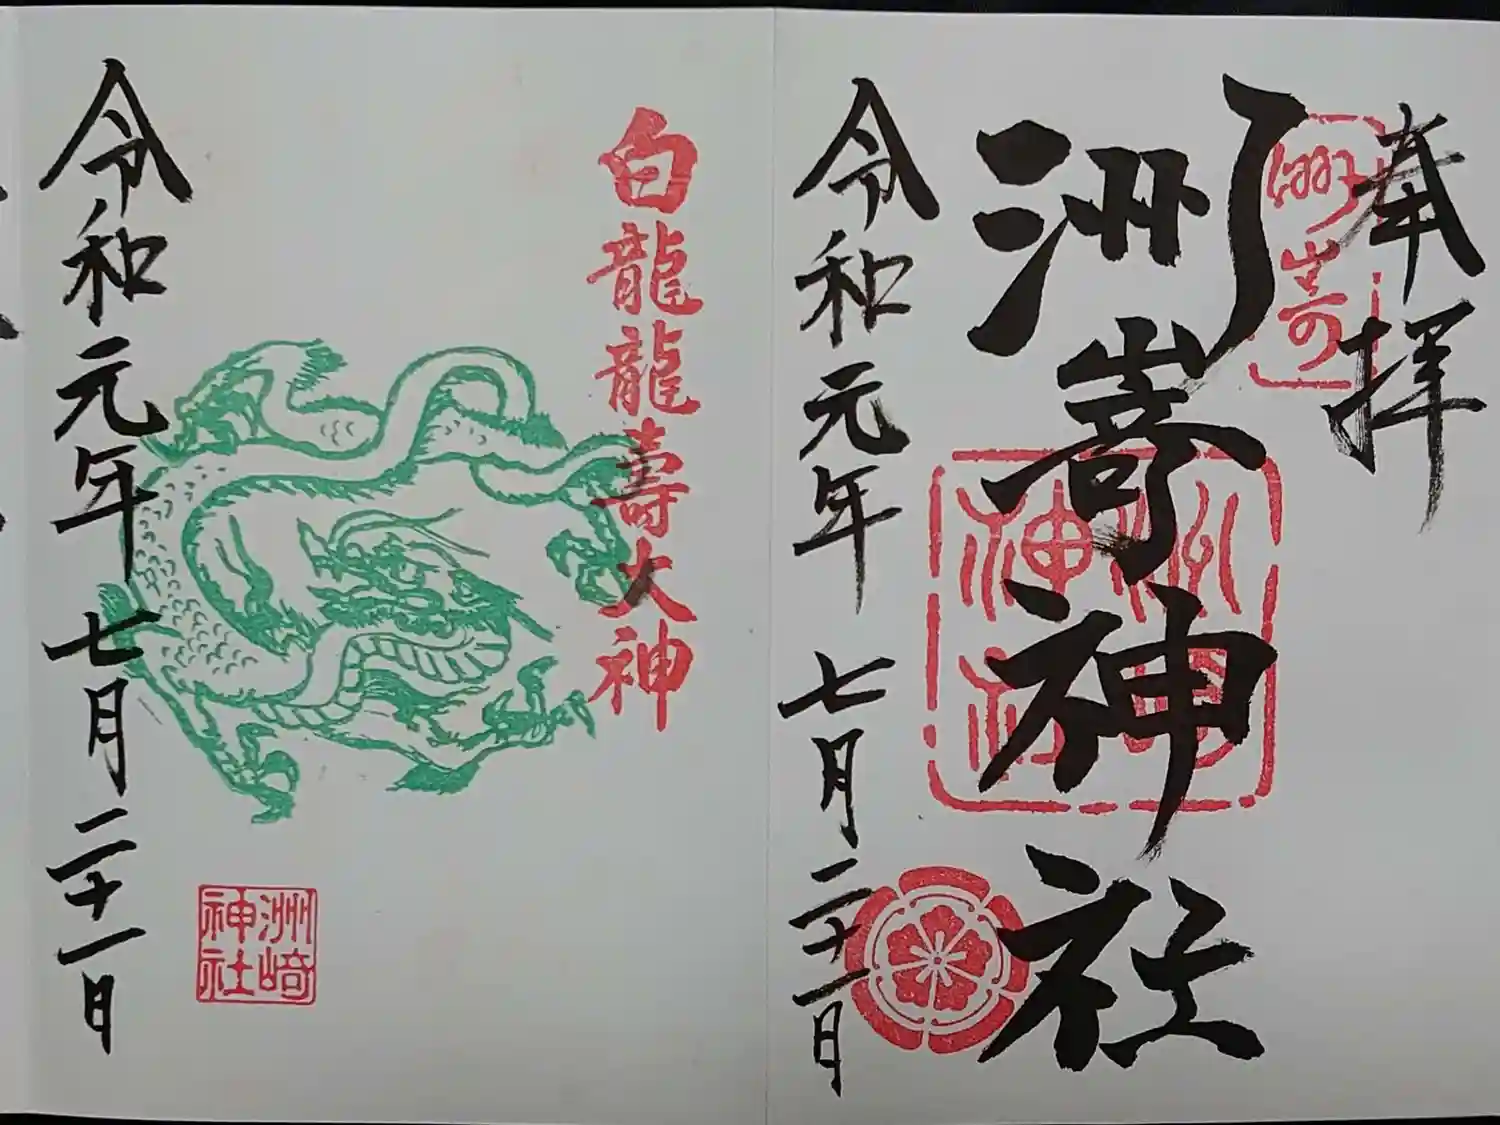 奉拝
洲嵜
洲嵜神社
洲嵜神社
令和元年 七月二十一日
白龍龍壽大神
令和元年 七月二十一日
洲崎神社